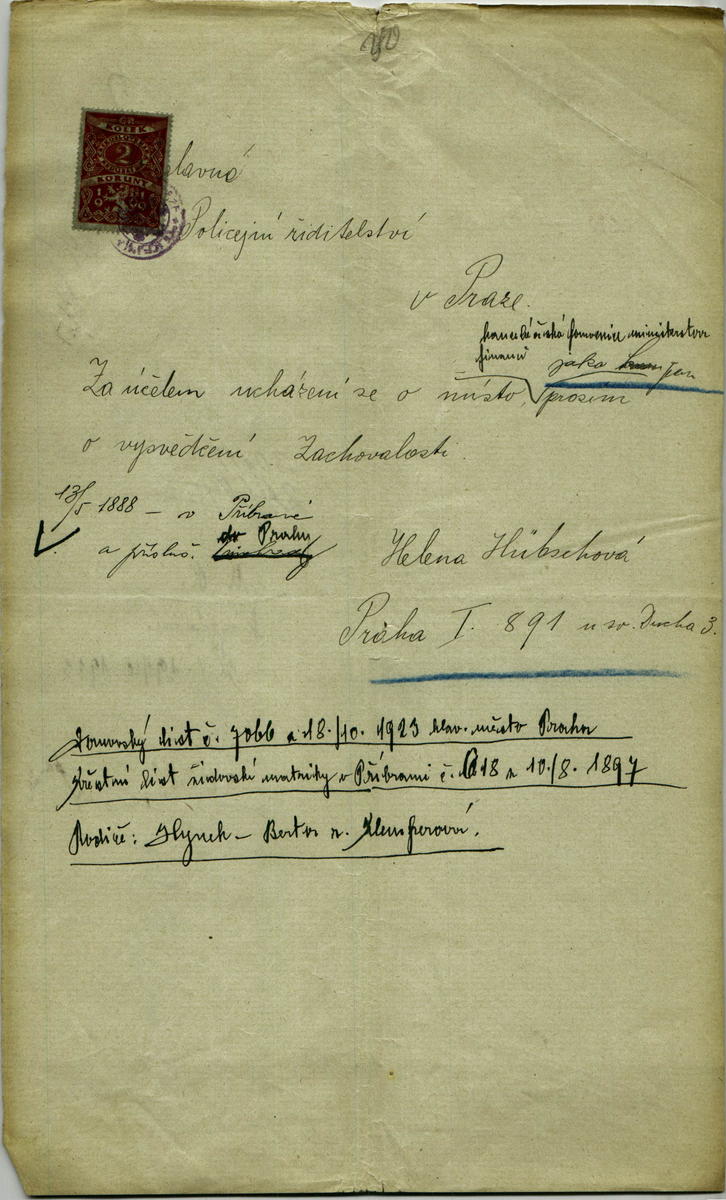 KOLEK
2
KORUNY
slavná
Policejní ředitelství
v Praze.
kancelářská pomocnice ministerstva
financí
jako
Za účelem ucházení se o místo, prosím
o vysvědčení Zachovalosti.
13/5 1888 – v Příbrami
do Prahy
a přísluš.
Helena Hübschová
Praha I. 891 u sv. Ducha 3.
Domovský list č. 7066 z 18./10. 1923 hlav. město Praha
Křestní list židovské matriky v Příbrami č. 18 z 10./8. 1897
Rodiče: Hynek – Berta r.